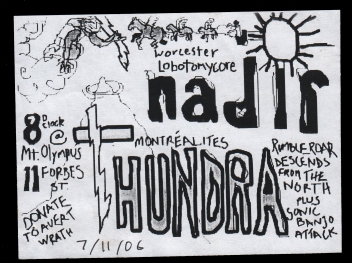 Worcester
Lobotomycore
nadir
8 O'clock
@
Mt. Olympus
11 FORBES
ST
DONATE
TO AVERT
WRATH
MONTRÉALITES
THUNDRA
RUMBLE ROAR
DESCENDS
FROM THE
NORTH
PLUS
SONIC
BANJO
ATTACK
7/11/06